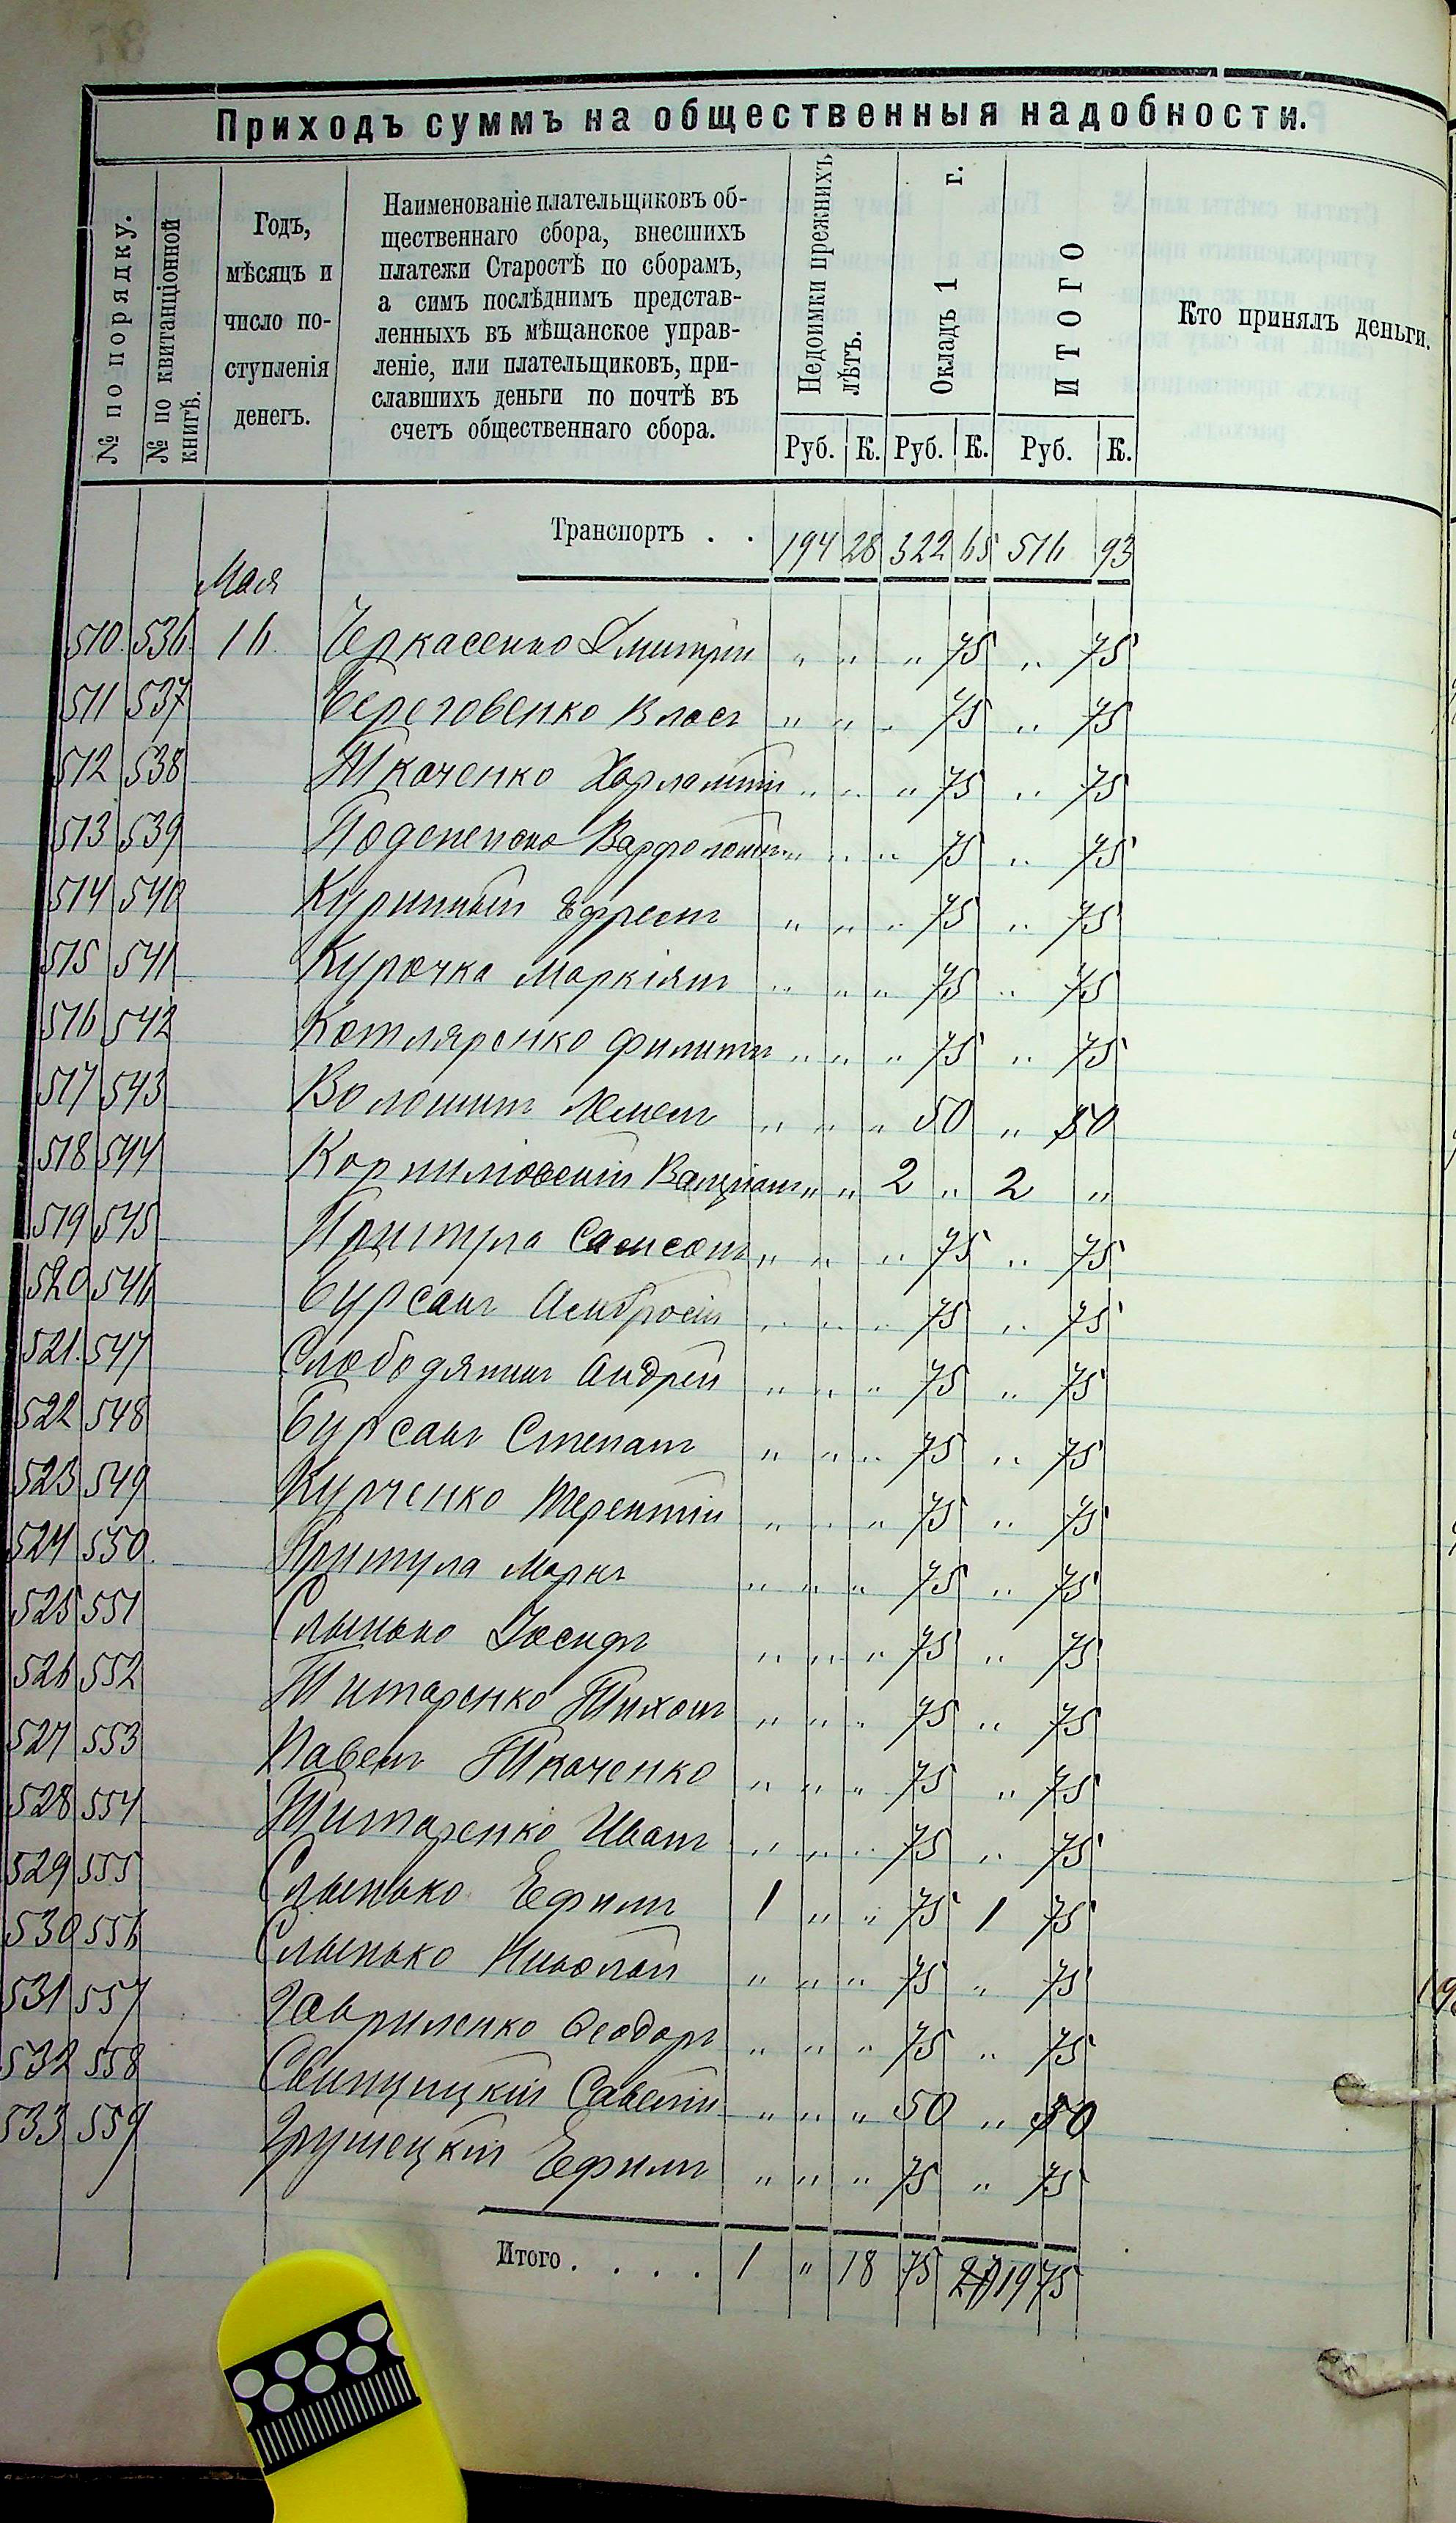 Приходъ суммъ на общественныя надобности.
№ по порядку.
№ по квитанціонной книгѣ.
Годъ, мѣсяцъ и число поступленія денегъ.
Наименованіе плательщиковъ об-
щественнаго сбора, внесшихъ
платежи Старостѣ по сборамъ,
а симъ послѣднимъ представ-
ленныхъ въ мѣщанское управ-
леніе, или плательщиковъ, при-
славшихъ деньги по почтѣ въ
счетъ общественнаго сбора.
Недоимки прежнихъ лѣтъ.
Окладъ 1 г.
ИТОГО
Кто принялъ деньги.
Руб. К. Руб. К. Руб. К.
Транспортъ . . 194 28 322 65 516 93
Мая
510. 536. 16. Черкасенко Дмитрій " " " 75 " 75
511 537 Береговенко Власъ " " " 75 " 75
512 538 Ткаченко Харлампій " " " 75 " 75
513 539 Варфоломей " " " 75 " 75
514 540 Куринный Ефремъ " " " 75 " 75
515 541 Курочка Маркіянъ " " " 75 " 75
516 542 Котляренко Филиппъ " " " 75 " 75
517 543 Волошинъ " " " 50 " 50
518 544 Корниловскій " " 2 " 2 "
519 545 Притула Самсонъ " " " 75 " 75
520 546 Бурсакъ Амбросій " " " 75 " 75
521. 547 Слободяникъ Андрей " " " 75 " 75
522 548 Бурсакъ Степанъ " " " 75 " 75
523 549 Курченко Терентій " " " 75 " 75
524 550. Притула Маркъ " " " 75 " 75
525 551 Слынько Іосифъ " " " 75 " 75
526 552 Титаренко Тихонъ " " " 75 " 75
527 553 Павелъ Ткаченко " " " 75 " 75
528 554 Титаренко Иванъ " " " 75 " 75
529 555 Слынько Ефимъ 1 " " 75 1 75
530 556 Слынько Николай " " " 75 " 75
531 557 Гавриленко Ѳеодоръ " " " 75 " 75
532 558 Савелій " " " 50 " 50
533 559 Грушецкій Ефимъ " " " 75 " 75
Итого . . . . 1 " 18 75 19 75